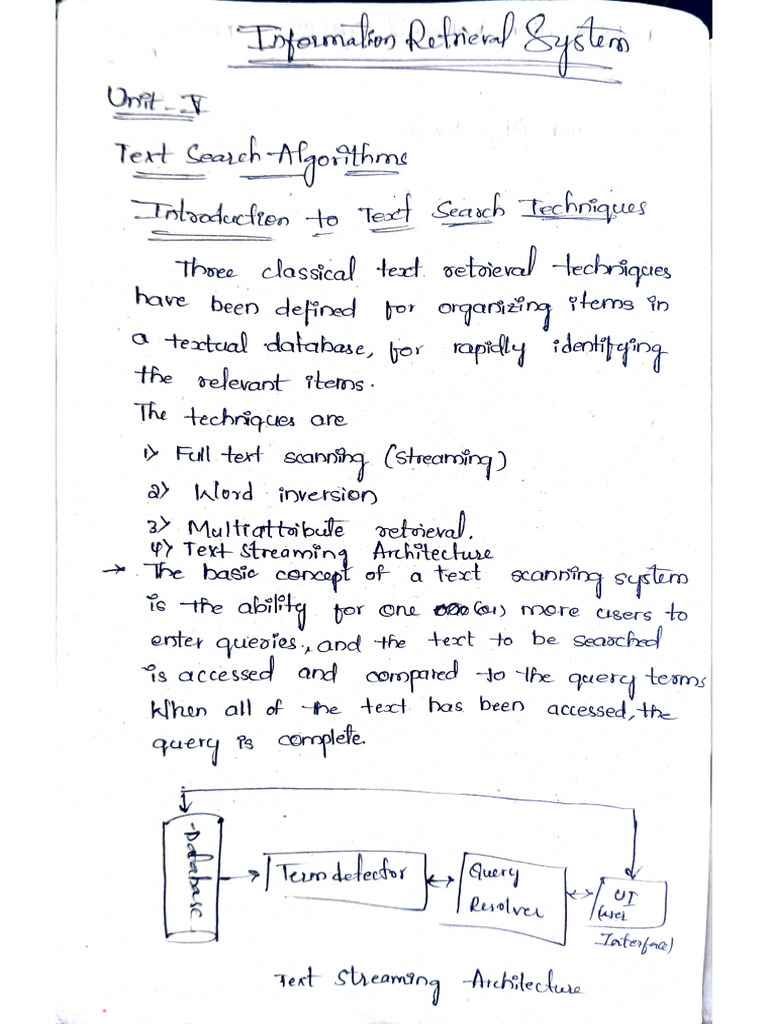 Information Retrieval System
Unit-V
Text Search Algorithms
Introduction to Text Search Techniques
Three classical text retrieval techniques
have been defined for organizing items in
a textual database, for rapidly identifying
the relevant items.
The techniques are
1) Full text scanning (streaming)
2) Word inversion
3) Multiattribute retrieval.
4) Text streaming Architecture
→ The basic concept of a text scanning system
is the ability for one (or) more users to
enter queries, and the text to be searched
is accessed and compared to the query terms
When all of the text has been accessed, the
query is complete.
Database
Term detector
Query
Resolver
UI
(user
Interface)
Text Streaming Architecture